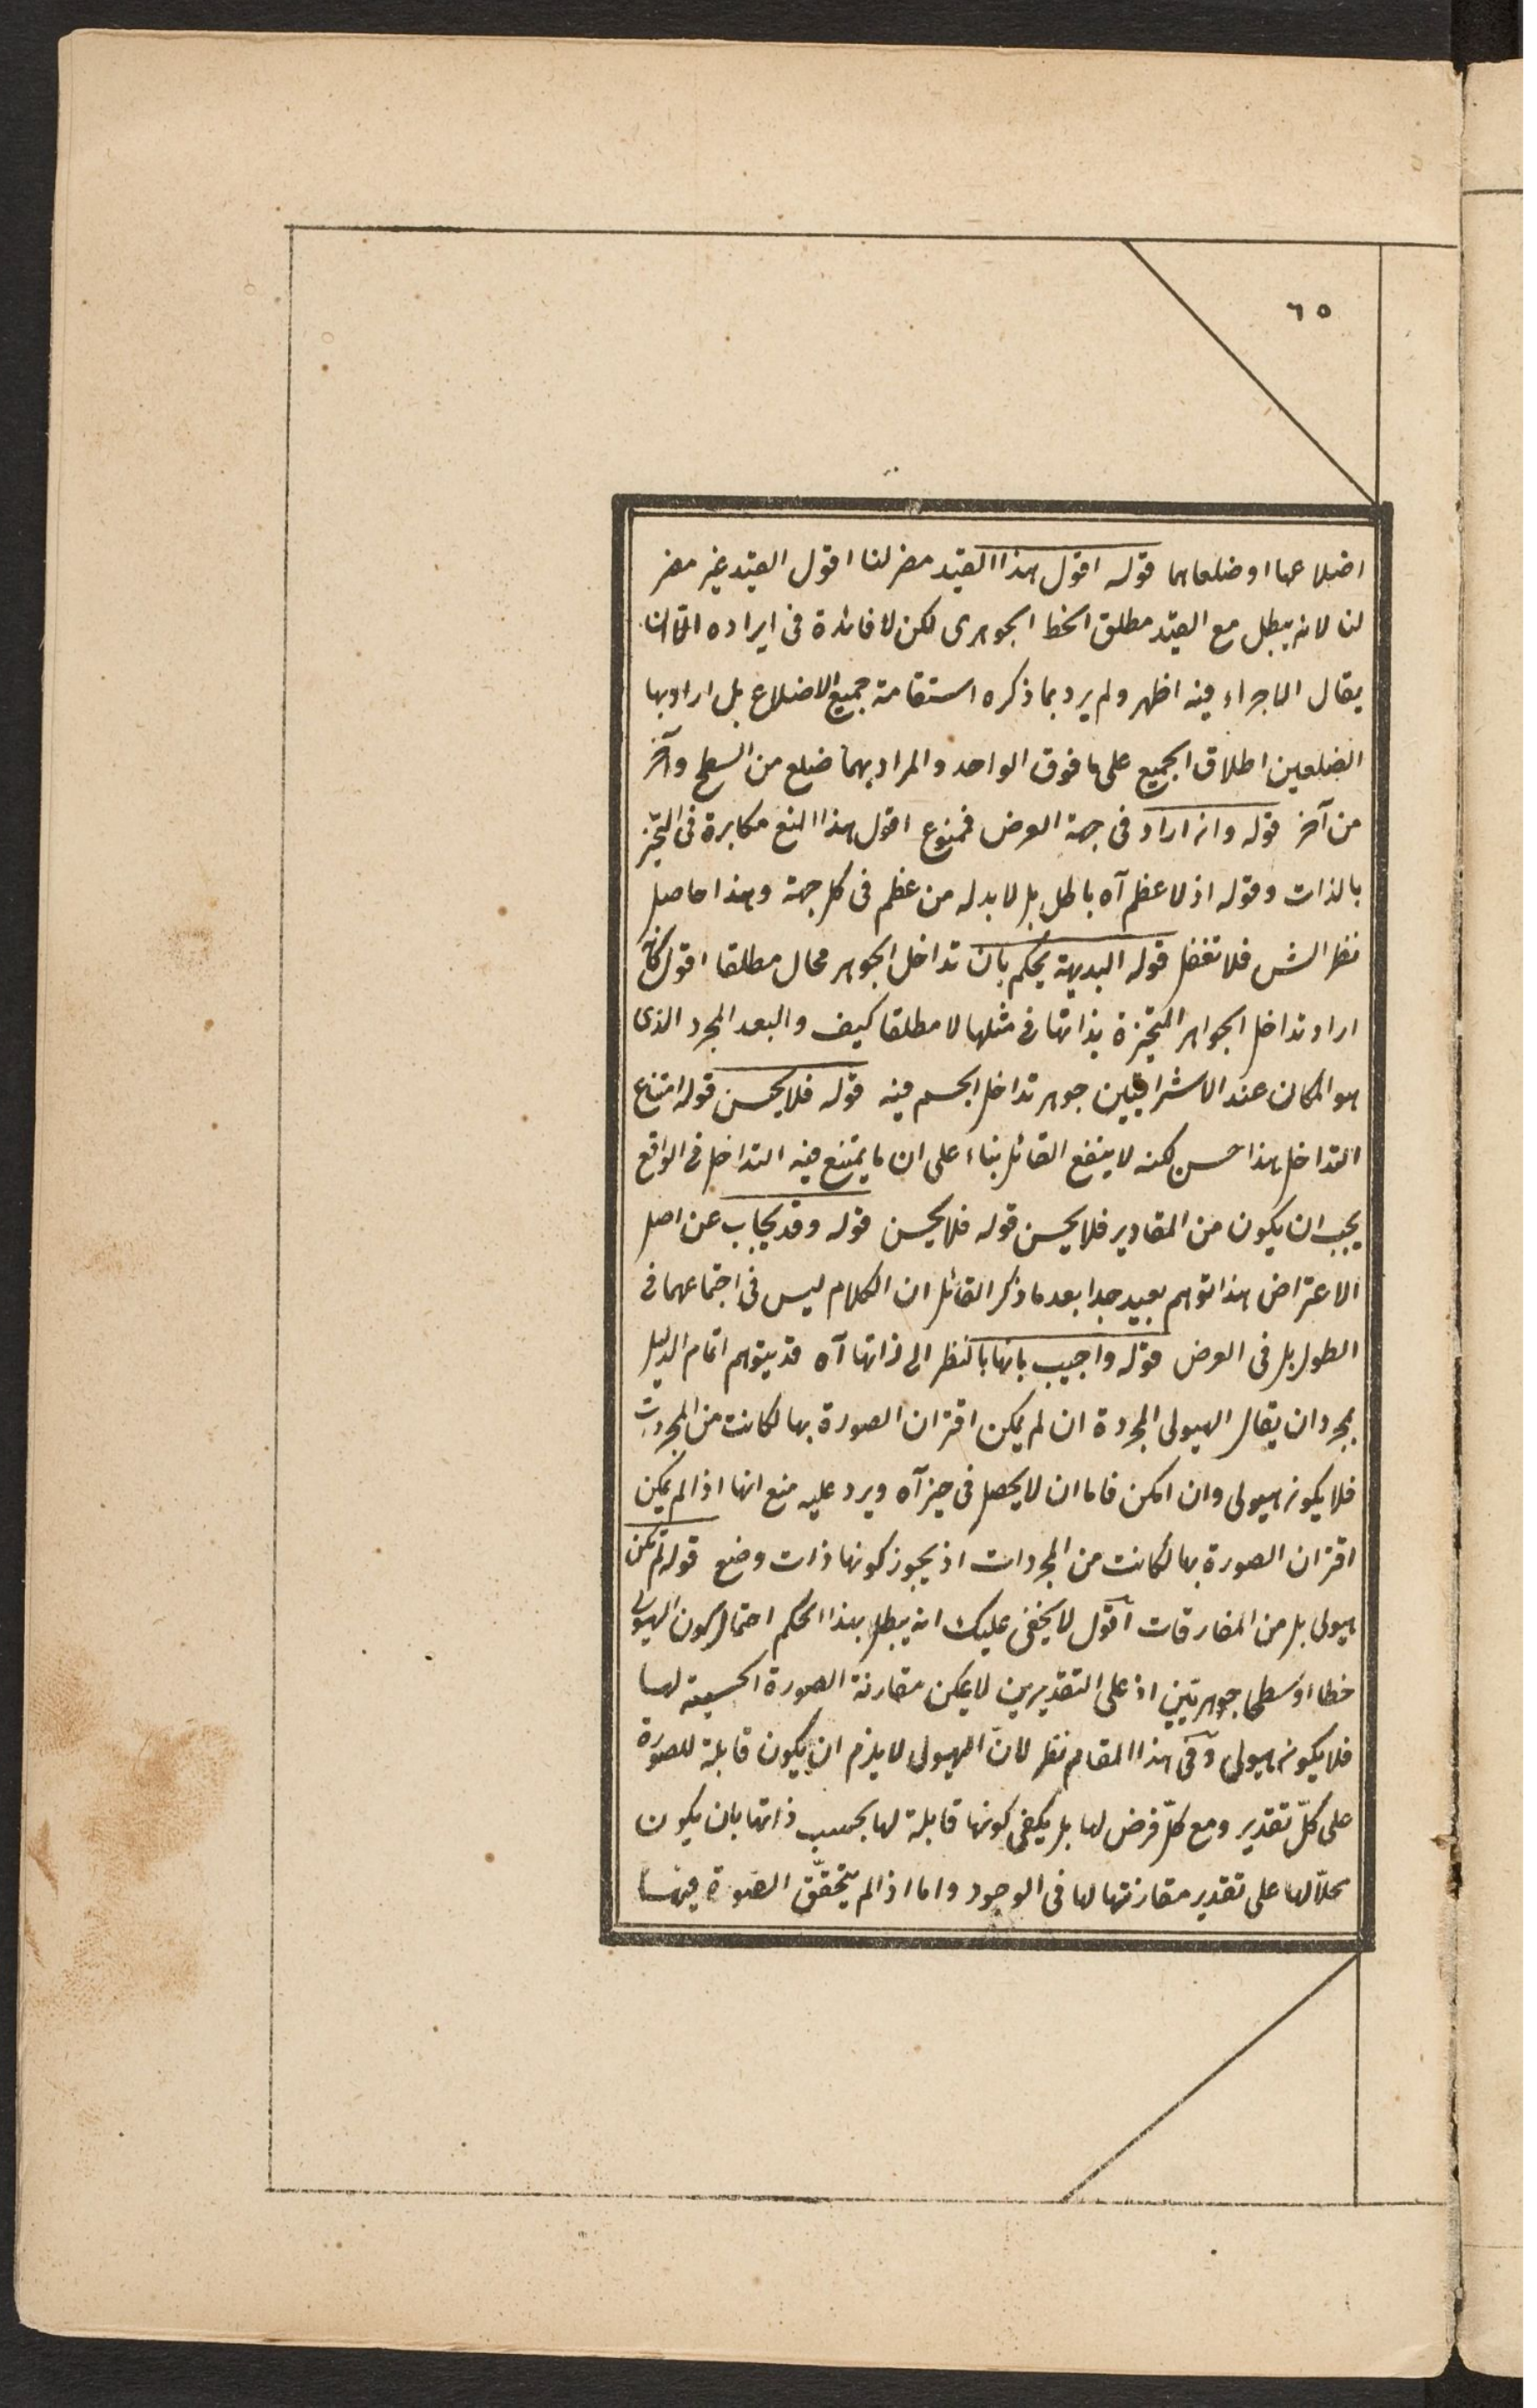 ٦٥
اضلاعها او ضلعاهما قوله اقول هذا القيد مضر لنا اقول القيد غير مضر
لنا لانه يبطل مع القيد مطلق الخط الجوهرى لكن لا فائدة فى ايراده الا ان
يقال الاجراء فيه اظهر ولم يرد بما ذكره استقامة جميع الاضلاع بل اراد بها
الضلعين اطلاق الجميع على ما فوق الواحد والمراد بهما ضلع من السطح وآخر
من آخر قوله وان اراد فى جهة العرض فممنوع اقول هذا المنع مكابرة فى المتحيز
بالذات وقوله اذ لا عظم آه باطل بل لا بد له من عظم فى كل جهة وهذا حاصل
نظر الش فلا تغفل قوله البديهة يحكم بان تداخل الجوهر محال مطلقا اقول كانه
اراد تداخل الجواهر المتحيزة بذاتها فى مثلها لا مطلقا كيف والبعد المجرد الذى
هو المكان عند الاشراقيين جوهر تداخل الجسم فيه قوله فلا يحسن قوله امتناع
التداخل هذا حسن لكنه لا ينفع القائل بناء على ان ما يمتنع فيه التداخل فى الواقع
يجب ان يكون من المقادير فلا يحسن قوله فلا يحسن قوله وقد يجاب عن اصل
الاعتراض هذا توهم بعيد جدا بعد ما ذكر القائل ان الكلام ليس فى اجتماعهما فى
الطول بل فى العرض قوله واجيب بانها بالنظر الى ذاتها آه قد يتوهم اتمام الدليل
بمجرد ان يقال الهيولى المجردة ان لم يمكن اقتران الصورة بها لكانت من المجردات
فلا يكون هيولى وان امكن فاما ان لا يحصل فى حيز آه ويرد عليه منع انها اذا لم يمكن
اقتران الصورة بها لكانت من المجردات اذ يجوز كونها ذات وضع قوله لم تكن
هيولى بل من المفارقات اقول لا يخفى عليك انه يبطل بهذا الحكم احتمال كون الهيولى
خطا او سطحا جوهريين اذ على التقديرين لا يمكن مقارنة الصورة الجسمية لها
فلا يكون هيولى وفى هذا المقام نظر لانّ الهيولى لا يلزم ان يكون قابلة للصورة
على كلّ تقدير ومع كلّ فرض لها بل يكفى كونها قابلة لها بحسب ذاتها بان يكون
محلّا لها على تقدير مقارنتها لها فى الوجود واما اذا لم يتحقّق الصّورة فيها